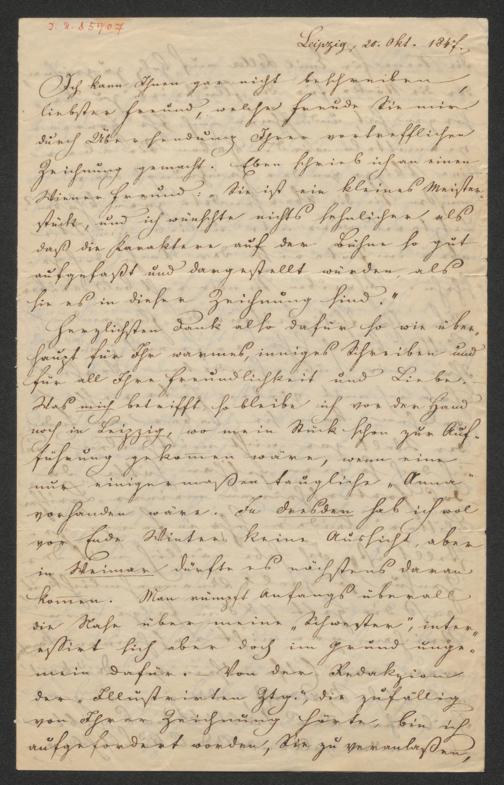 I. N. 85707
Leipzig, 20. Okt. 1847.
Ich kann Ihnen gar nicht beschreiben,
liebster Freund, welche Freude Sie mir
durch Übersendung Ihrer vortrefflichen
Zeichnung gemacht. Eben schrieb ich an einen
Wiener Freund: „Sie ist ein kleines Meister-
stück, und ich wünschte nichts sehnlicher, als
daß die Karaktere auf der Bühne so gut
aufgefaßt und dargestellt würden, als
sie es in dieser Zeichnung sind."
Herzlichsten Dank also dafür so wie über-
haupt für Ihr warmes, inniges Schreiben und
für all Ihre Freundlichkeit und Liebe.
Was mich betrifft so bleibe ich vor der Hand
noch in Leipzig, wo mein Stück schon zur Auf-
führung gekommen wäre, wenn eine
nur einigermaßen taugliche „Anna"
vorhanden wäre. In Dresden hab ich wol
vor Ende Winters keine Aussicht aber
in Weimar dürfte es nächstens daran
kommen. Man rümpft Anfangs überall
die Nase über meine „Schwester", inter-
essirt sich aber doch im Grund unge-
mein dafür. Von der Redakzion
der „Illustrirten Ztg.", die zufällig
von Ihrer Zeichnung hörte, bin ich
aufgefordert worden, Sie zu veranlaßen,